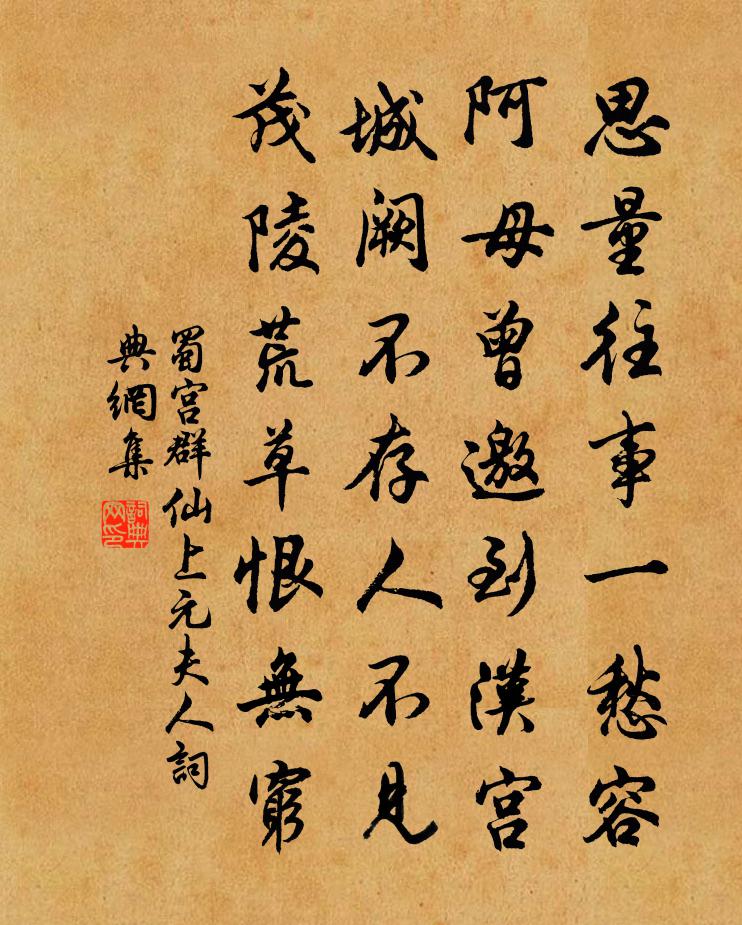 思量往事一愁容
阿母曾邀到漢宮
城阙不存人不見
茂陵荒草恨無窮
蜀宮群仙上元夫人詞
典網集
詞典
网印